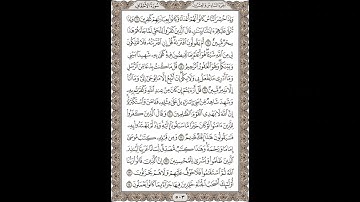 سُورَةُ الأَحْقَافِ الجُزْءُ السَّادِسُ وَالعِشْرُونَ
وَإِذَا حُشِرَ ٱلنَّاسُ كَانُوا۟ لَهُمْ أَعْدَآءً وَكَانُوا۟ بِعِبَادَتِهِمْ كَٰفِرِينَ ٦ وَإِذَا
تُتْلَىٰ عَلَيْهِمْ ءَايَٰتُنَا بَيِّنَٰتٍ قَالَ ٱلَّذِينَ كَفَرُوا۟ لِلْحَقِّ لَمَّا جَآءَهُمْ هَٰذَا
سِحْرٌ مُّبِينٌ ٧ أَمْ يَقُولُونَ ٱفْتَرَىٰهُ قُلْ إِنِ ٱفْتَرَيْتُهُۥ فَلَا تَمْلِكُونَ
لِى مِنَ ٱللَّهِ شَيْـًٔا هُوَ أَعْلَمُ بِمَا تُفِيضُونَ فِيهِ كَفَىٰ بِهِۦ شَهِيدًۢا بَيْنِى
وَبَيْنَكُمْ وَهُوَ ٱلْغَفُورُ ٱلرَّحِيمُ ٨ قُلْ مَا كُنتُ بِدْعًا مِّنَ ٱلرُّسُلِ
وَمَآ أَدْرِى مَا يُفْعَلُ بِى وَلَا بِكُمْ إِنْ أَتَّبِعُ إِلَّا مَا يُوحَىٰٓ إِلَىَّ وَمَآ أَنَا۠
إِلَّا نَذِيرٌ مُّبِينٌ ٩ قُلْ أَرَءَيْتُمْ إِن كَانَ مِنْ عِندِ ٱللَّهِ وَكَفَرْتُم بِهِۦ
وَشَهِدَ شَاهِدٌ مِّنۢ بَنِىٓ إِسْرَٰٓءِيلَ عَلَىٰ مِثْلِهِۦ فَـَٔامَنَ وَٱسْتَكْبَرْتُمْ
إِنَّ ٱللَّهَ لَا يَهْدِى ٱلْقَوْمَ ٱلظَّٰلِمِينَ ١٠ وَقَالَ ٱلَّذِينَ كَفَرُوا۟
لِلَّذِينَ ءَامَنُوا۟ لَوْ كَانَ خَيْرًا مَّا سَبَقُونَآ إِلَيْهِ وَإِذْ لَمْ يَهْتَدُوا۟ بِهِۦ
فَسَيَقُولُونَ هَٰذَآ إِفْكٌ قَدِيمٌ ١١ وَمِن قَبْلِهِۦ كِتَٰبُ مُوسَىٰٓ
إِمَامًا وَرَحْمَةً وَهَٰذَا كِتَٰبٌ مُّصَدِّقٌ لِّسَانًا عَرَبِيًّا لِّيُنذِرَ
ٱلَّذِينَ ظَلَمُوا۟ وَبُشْرَىٰ لِلْمُحْسِنِينَ ١٢ إِنَّ ٱلَّذِينَ قَالُوا۟ رَبُّنَا
ٱللَّهُ ثُمَّ ٱسْتَقَٰمُوا۟ فَلَا خَوْفٌ عَلَيْهِمْ وَلَا هُمْ يَحْزَنُونَ ١٣
أُو۟لَٰٓئِكَ أَصْحَٰبُ ٱلْجَنَّةِ خَٰلِدِينَ فِيهَا جَزَآءًۢ بِمَا كَانُوا۟ يَعْمَلُونَ ١٤
٥٠٣